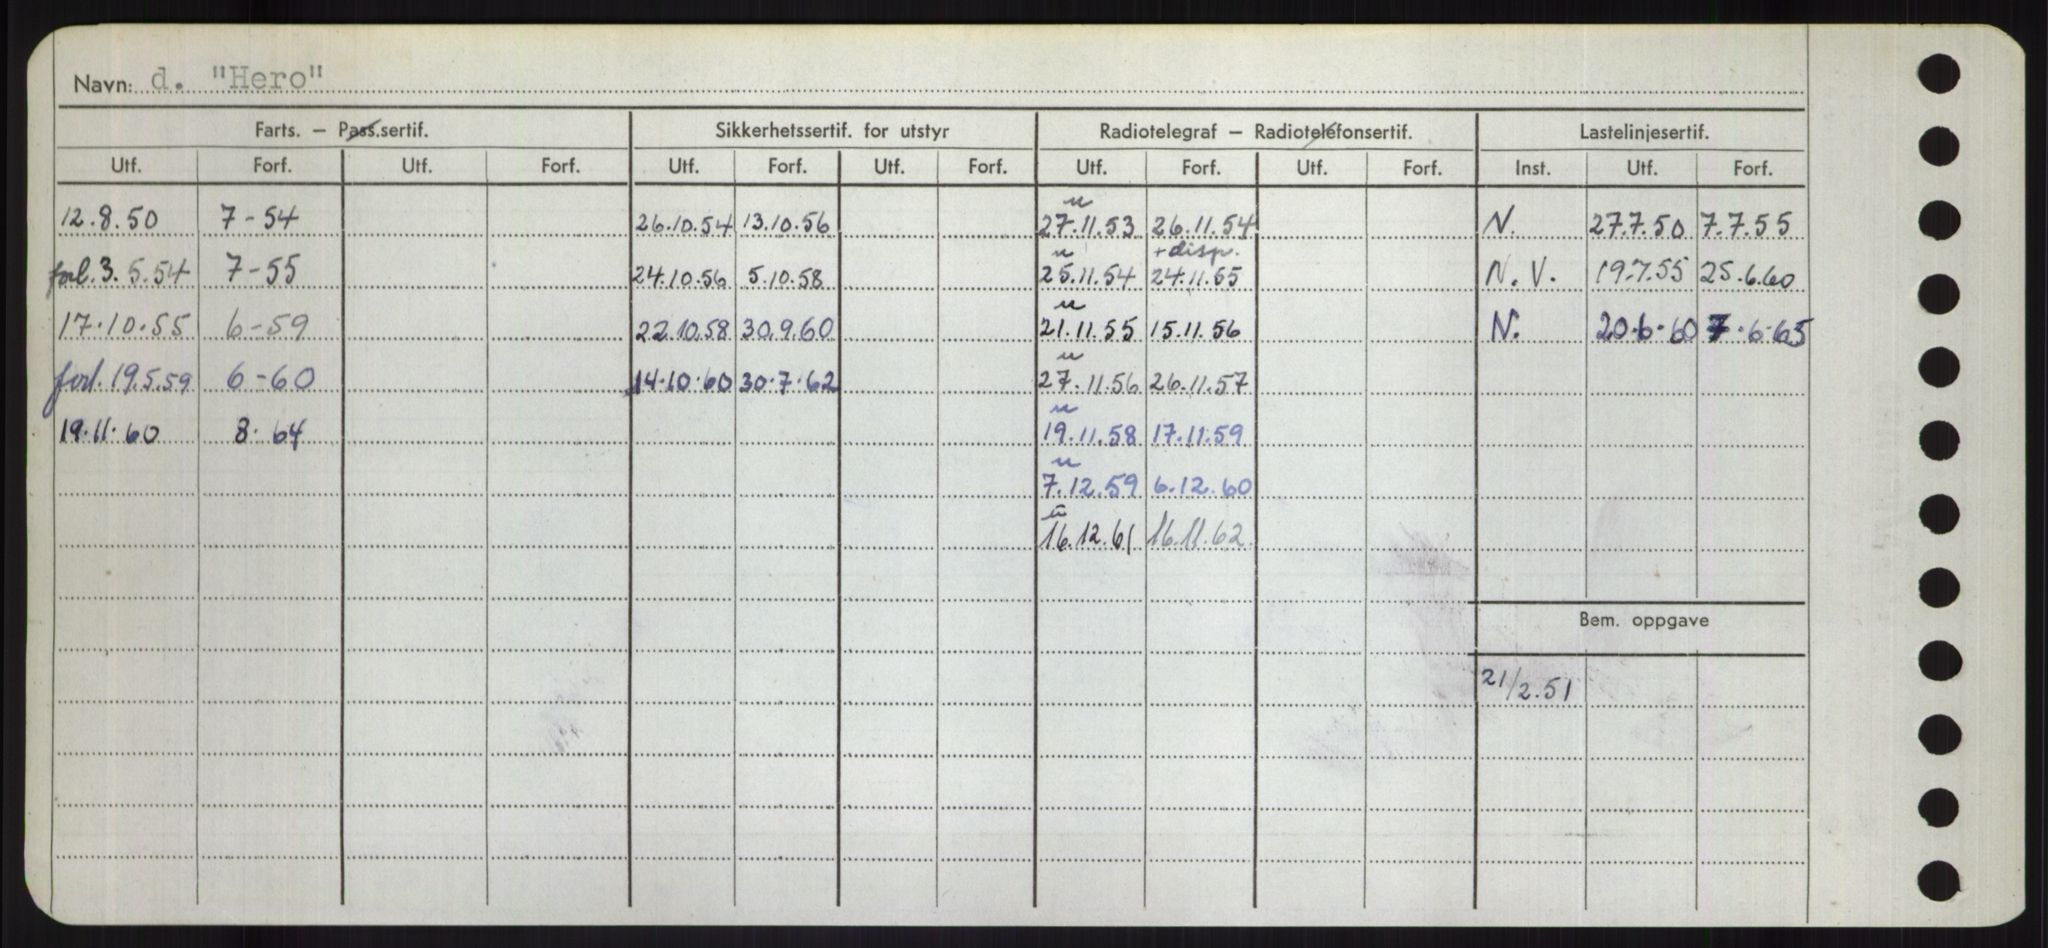 Navn: d. "Hero"
Farts. — Pass.sertif. Sikkerhetssertif. for utstyr Radiotelegraf — Radiotelefonsertif. Lastelinjesertif.
Utf. Forf. Utf. Forf. Utf. Forf. Utf. Forf. Utf. Forf. Utf. Forf. Inst. Utf. Forf.
u
12.8.50 7-54 26.10.54 13.10.56 27.11.53 26.11.54 N. 27.7.50 7.7.55
u +disp.
forl. 3.5.54 7-55 24.10.56 5.10.58 25.11.54 24.11.55 N.V. 19.7.55 25.6.60
u
17.10.55 6-59 22.10.58 30.9.60 21.11.55 15.11.56 N. 20.6.60 7.6.65
u
forl. 19.5.59 6-60 14.10.60 30.7.62 27.11.56 26.11.57
u
19.11.60 8.64 19.11.58 17.11.59
u
7.12.59 6.12.60
u
16.12.61 16.11.62
Bem. oppgave
21/2.51